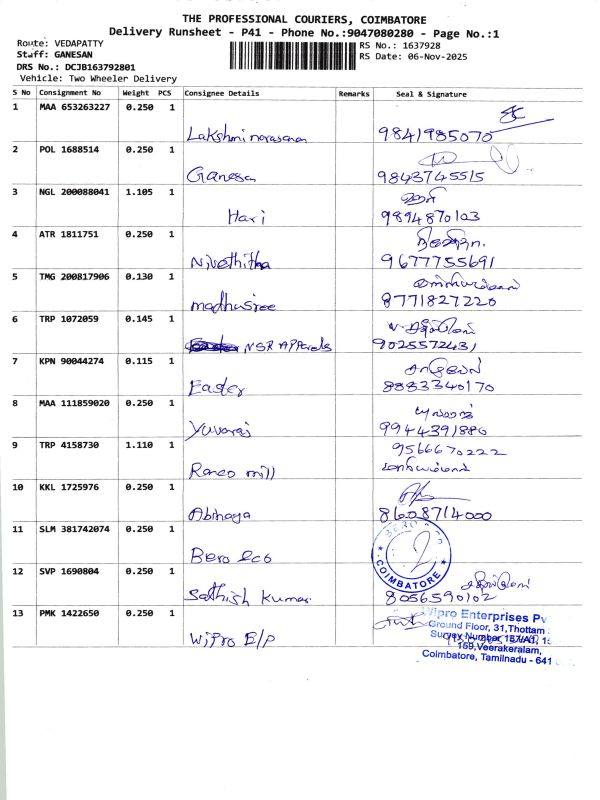 THE PROFESSIONAL COURIERS, COIMBATORE
Delivery Runsheet - P41 - Phone No.:9047080280 - Page No.:1
Route: VEDAPATTY
Staff: GANESAN
DRS No.: DCJB163792801
Vehicle: Two Wheeler Delivery
RS No.: 1637928
RS Date: 06-Nov-2025
S No Consignment No Weight PCS Consignee Details Remarks Seal & Signature
1 MAA 653263227 0.250 1
Lakshmi narasanan 9841985070
2 POL 1688514 0.250 1
Ganesa 9843745515
3 NGL 200088041 1.105 1
Hari 9894870103
4 ATR 1811751 0.250 1
Nivethitha 9677755691
5 TMG 200817906 0.130 1
madhusree 8771827220
6 TRP 1072059 0.145 1
NSR APParels 9025572431
7 KPN 90044274 0.115 1
Easter 8883340170
8 MAA 111859020 0.250 1
Yuvaraj 9944391880
9 TRP 4158730 1.110 1 9566670222
Ranco mill
10 KKL 1725976 0.250 1
Abinaya 8608714000
11 SLM 381742074 0.250 1
Bero eco
BERO
2
COIMBATORE
12 SVP 1690804 0.250 1
Sathish Kumar 8056590102
13 PMK 1422650 0.250 1
Wipro E/P
Wipro Enterprises Pv
Ground Floor, 31, Thottam
Survey Number 157/A1, 1
159, Veerakeralam,
Coimbatore, Tamilnadu - 641